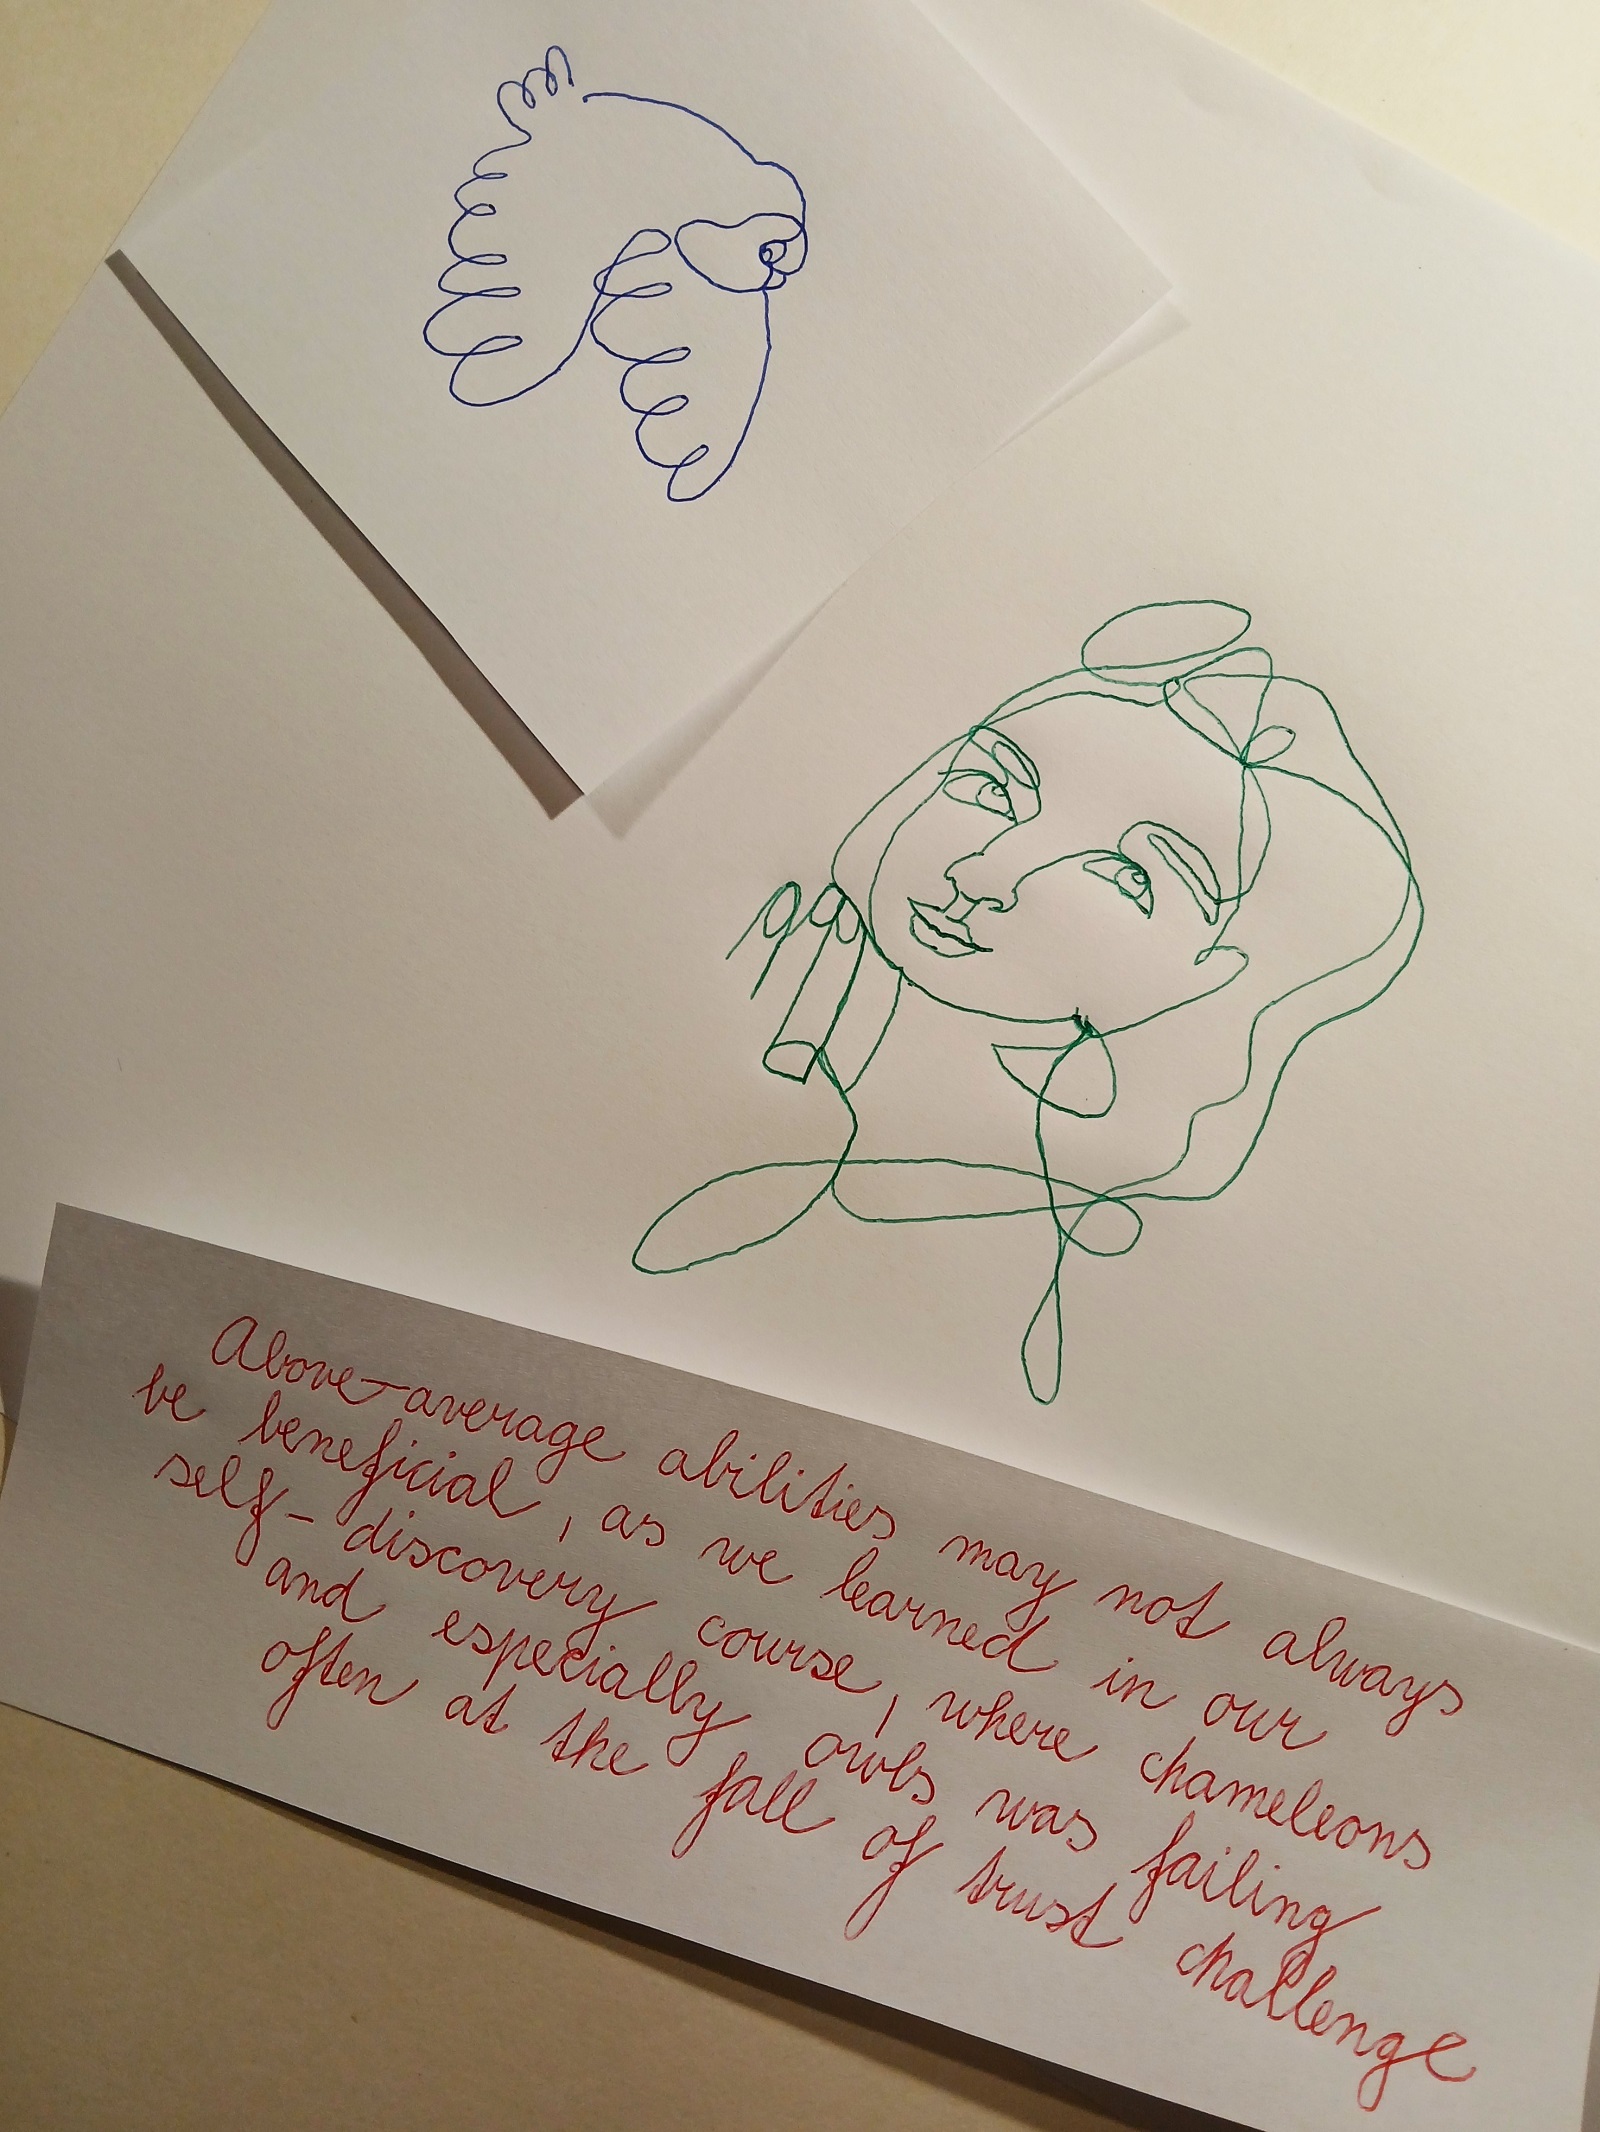 Above-average abilities may not always
be beneficial, as we learned in our
self-discovery course, where chameleons
and especially owls was failing
often at the fall of trust challenge